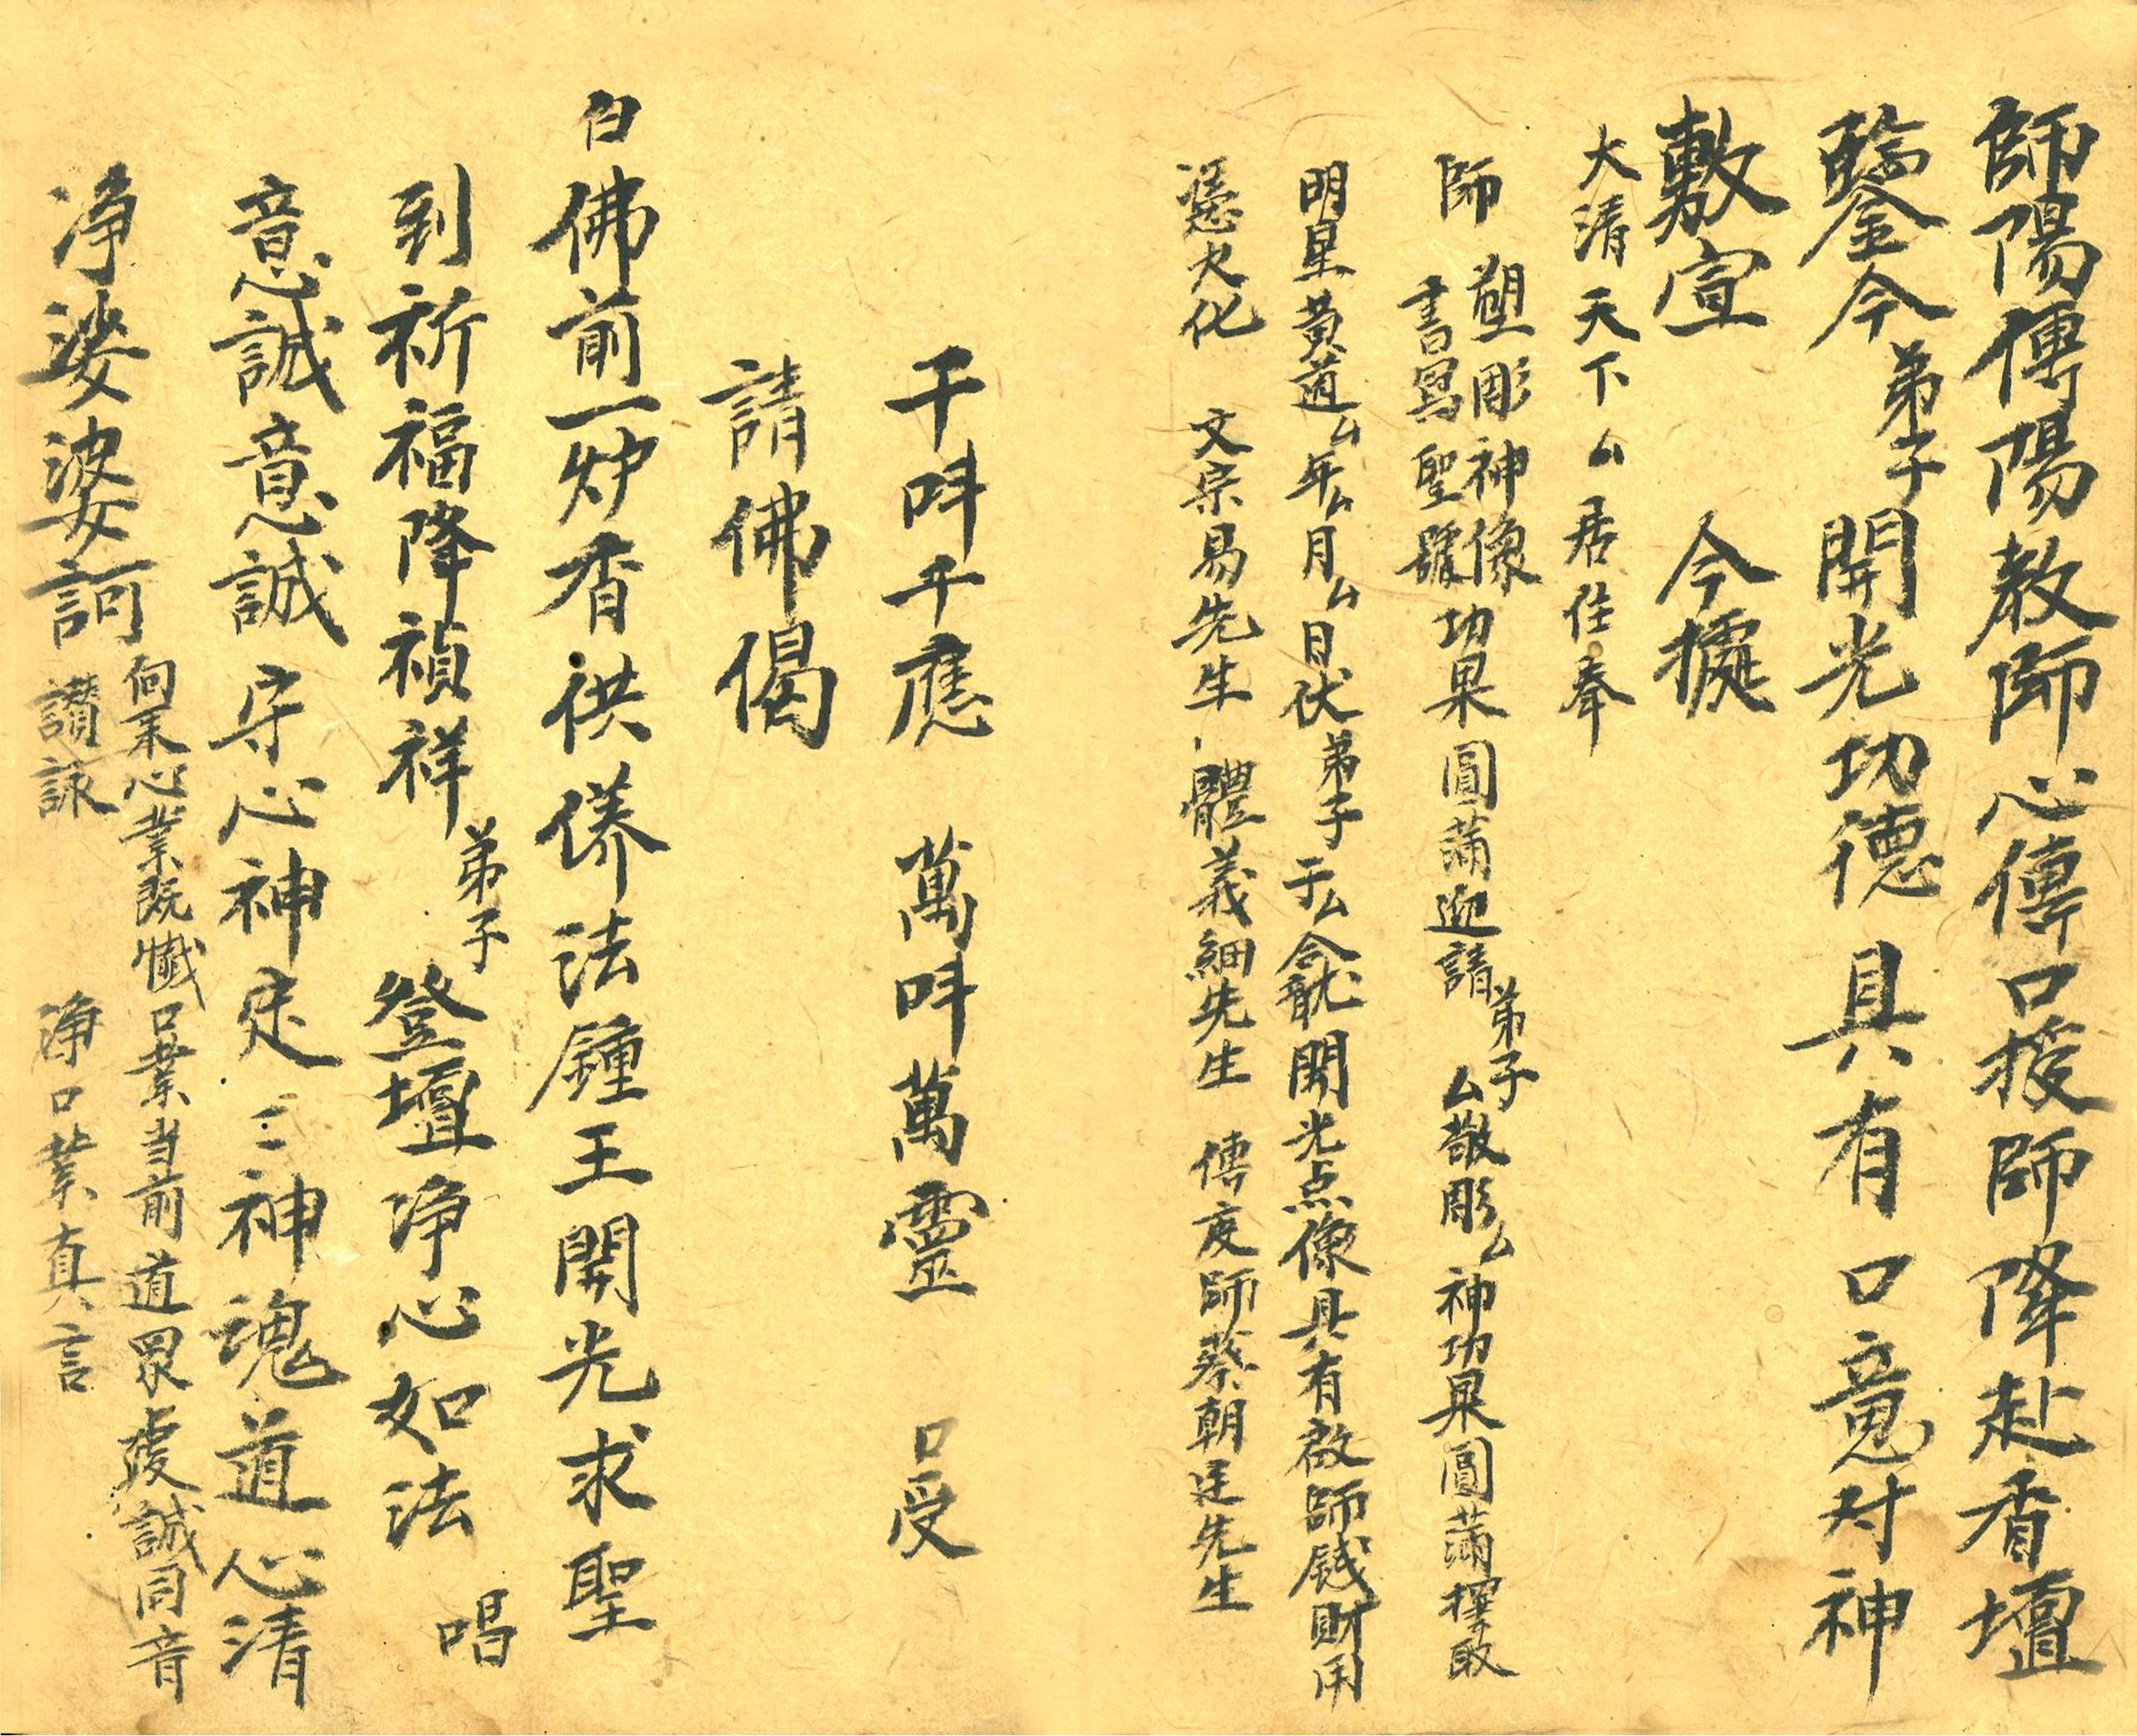 師陽傳陽教師心傳口授師降赴香壇
鑒今弟子開光功德具有口意对神
敷宣 今據
大清天下厶居住奉
師 塑彫神像
書寫聖號
功果圓滿迎請弟子厶敬彫厶神功果圓滿擇取
明星黃道厶年厶月厶日伏弟子于厶開光点像具有啟師錢財用
憑火化 文宗易先生 體義細先生 傳度師蔡朝廷先生
千叫千應 萬叫萬靈 口受
請佛偈
白佛前一炉香供侢法鐘王開光求聖
到祈福降禎祥弟子登壇净心如法 唱
意誠意誠守心神定三神魂道心清
净婆婆訶
向來心業既懺口業当前道眾虔誠同音
讃詠 净口業真言